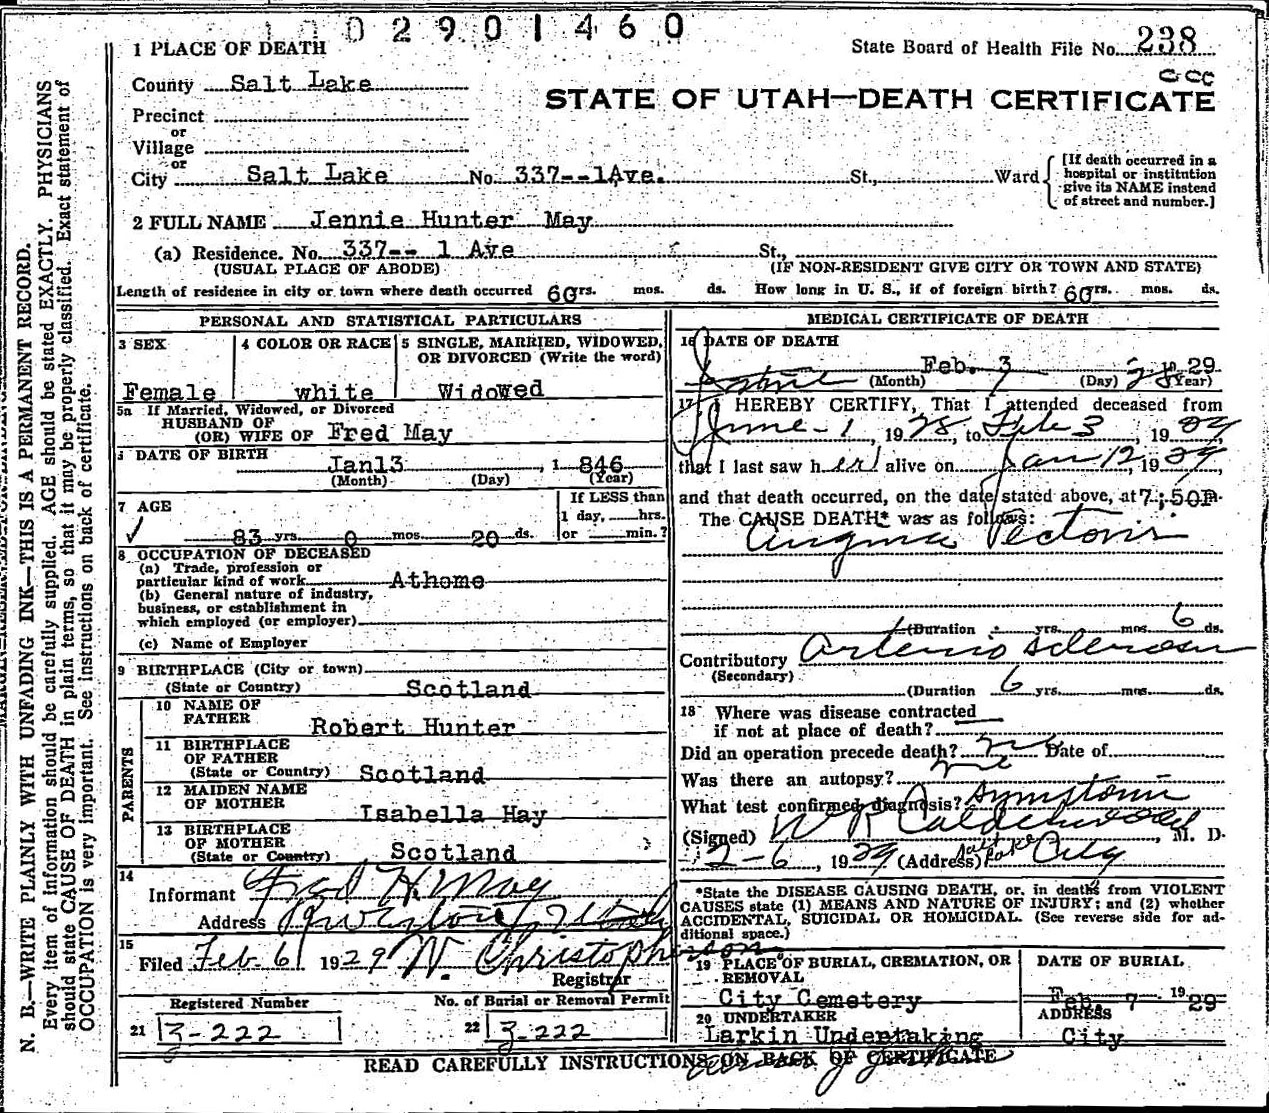 0 2 9 0 1 4 6 0
1 PLACE OF DEATH
State Board of Health File No. 238
County Salt Lake
STATE OF UTAH—DEATH CERTIFICATE
Precinct
or
Village
or
City Salt Lake No. 337--1Ave. St., Ward
[If death occurred in a
hospital or institution
give its NAME instead
of street and number.]
2 FULL NAME Jennie Hunter May
(a) Residence. No. 337-- 1 Ave St.,
(USUAL PLACE OF ABODE) (IF NON-RESIDENT GIVE CITY OR TOWN AND STATE)
Length of residence in city or town where death occurred 60 yrs. mos. ds. How long in U. S., if of foreign birth? 60 yrs. mos. ds.
PERSONAL AND STATISTICAL PARTICULARS
3 SEX
Female
4 COLOR OR RACE
white
5 SINGLE, MARRIED, WIDOWED,
OR DIVORCED (Write the word)
Widowed
5a If Married, Widowed, or Divorced
HUSBAND OF
(OR) WIFE OF Fred May
6 DATE OF BIRTH
Jan13, 1 846
(Month) (Day) (Year)
7 AGE
83 yrs. 0 mos. 20 ds.
If LESS than
1 day, hrs.
or min.?
8 OCCUPATION OF DECEASED
(a) Trade, profession or
particular kind of work Athome
(b) General nature of industry,
business, or establishment in
which employed (or employer)
(c) Name of Employer
9 BIRTHPLACE (City or town)
(State or Country) Scotland
PARENTS
10 NAME OF
FATHER
Robert Hunter
11 BIRTHPLACE
OF FATHER
(State or Country) Scotland
12 MAIDEN NAME
OF MOTHER
Isabella Hay
13 BIRTHPLACE
OF MOTHER
(State or Country) Scotland
14
Informant Fred H. May
Address Riverton, Utah
15
Filed Feb. 6 1929 W. Christopherson
Registrar
Registered Number
21 3-222
No. of Burial or Removal Permit
22 3-222
MEDICAL CERTIFICATE OF DEATH
16 DATE OF DEATH
Feb. 3 1929
(Month) (Day) (Year)
17 I HEREBY CERTIFY, That I attended deceased from
June 1, 1928, to Feb 3 1929
that I last saw her alive on Jan 12, 1929,
and that death occurred, on the date stated above, at 7:50P.
The CAUSE DEATH* was as follows:
Angina Pectoris
(Duration yrs. mos. 6 ds.
Contributory Arterio sclerosis
(Secondary)
(Duration 6 yrs. mos. ds.
18 Where was disease contracted
if not at place of death?
Did an operation precede death? no Date of
Was there an autopsy? no
What test confirmed diagnosis? Symptoms
(Signed) W R Calderwood, M. D.
2-6, 1929 (Address) Salt Lake City
*State the DISEASE CAUSING DEATH, or, in deaths from VIOLENT
CAUSES state (1) MEANS AND NATURE OF INJURY; and (2) whether
ACCIDENTAL, SUICIDAL OR HOMICIDAL. (See reverse side for ad-
ditional space.)
19 PLACE OF BURIAL, CREMATION, OR
REMOVAL
City Cemetery
DATE OF BURIAL
Feb. 7 1929
20 UNDERTAKER
Larkin Undertaking
ADDRESS
City
READ CAREFULLY INSTRUCTIONS ON BACK OF CERTIFICATE
N. B.—WRITE PLAINLY WITH UNFADING INK—THIS IS A PERMANENT RECORD.
Every item of information should be carefully supplied. AGE should be stated EXACTLY. PHYSICIANS
should state CAUSE OF DEATH in plain terms, so that it may be properly classified. Exact statement of
OCCUPATION is very important. See instructions on back of certificate.